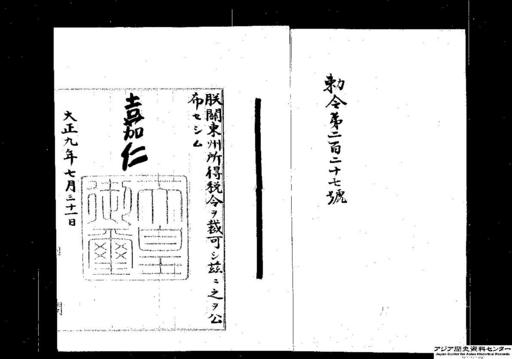 勅令第二百二十七號
朕關東州所得税令ヲ裁可シ茲ニ之ヲ公
布セシム
嘉仁
天皇
御璽
大正九年七月三十一日
アジア歴史資料センター
Japan Center for Asian Historical Records